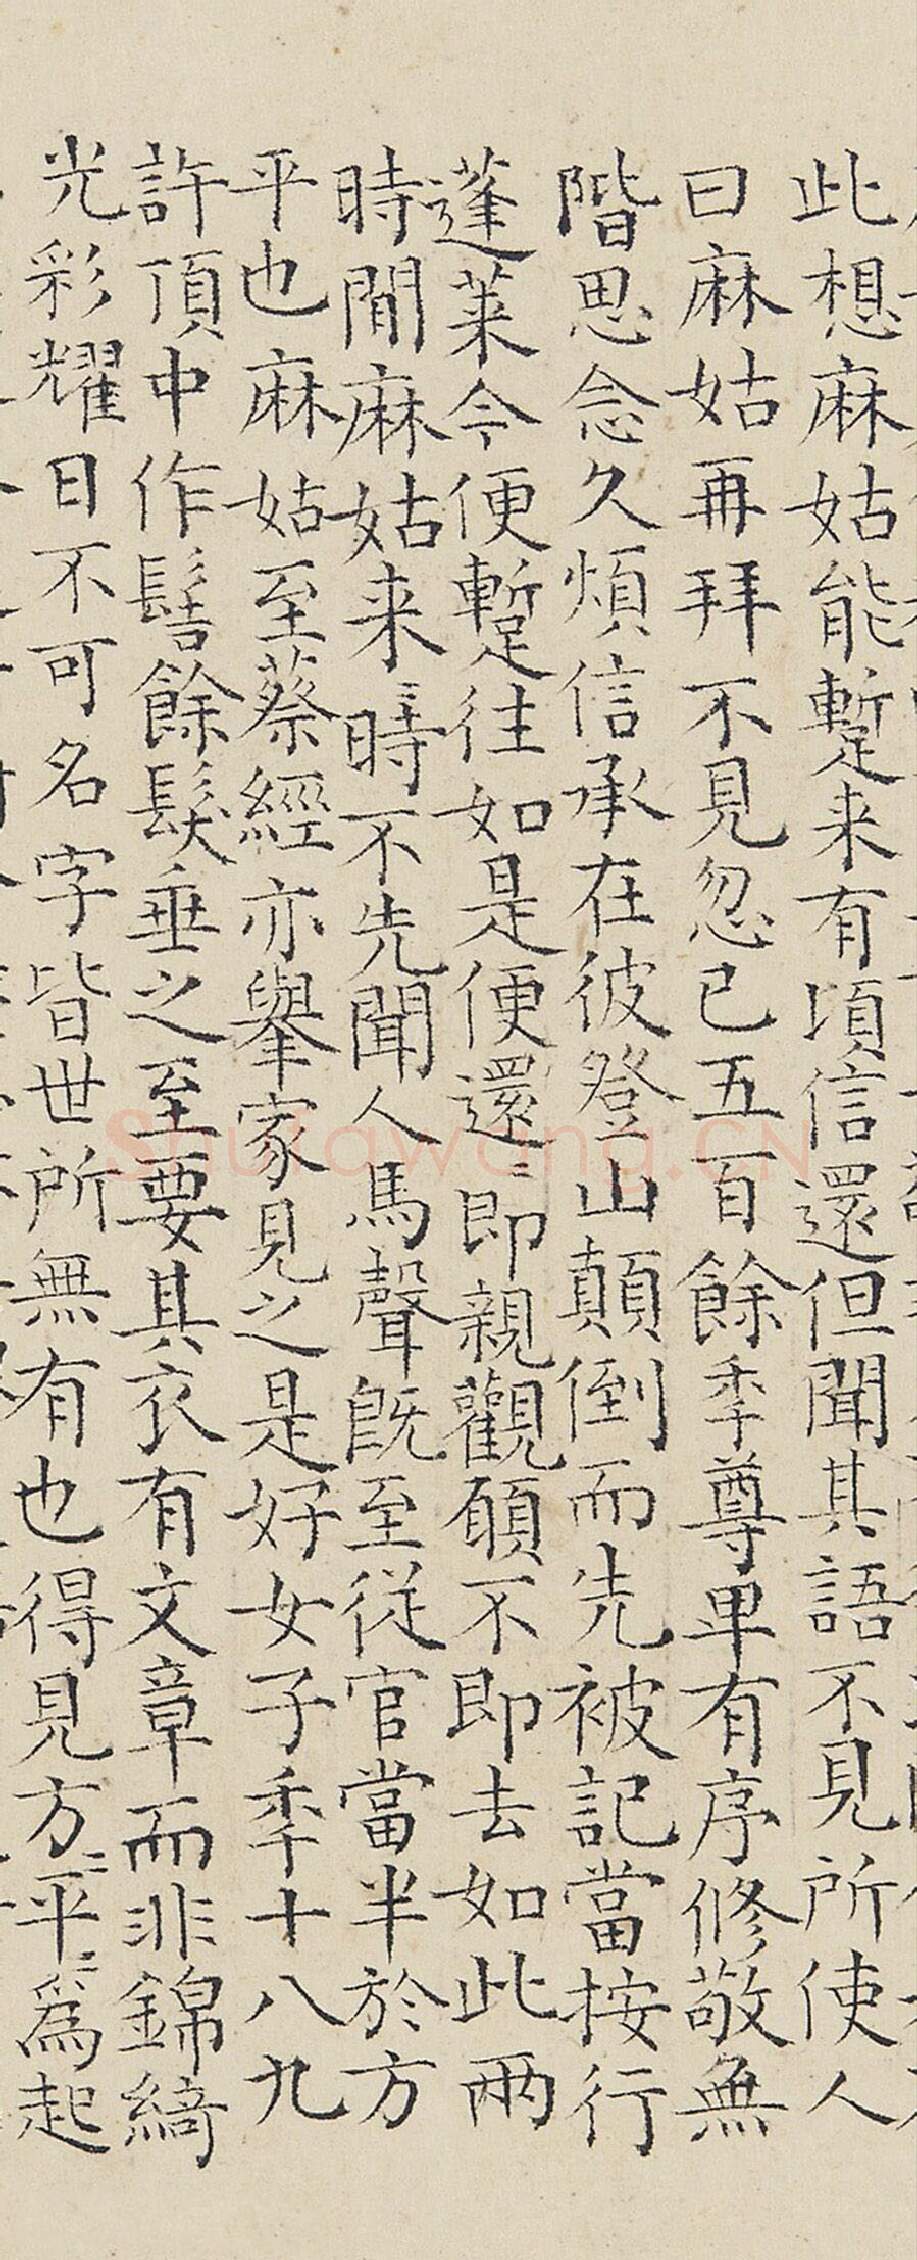 此想麻姑能暫来有頃信還但聞其語不見所使人
曰麻姑再拜不見忽已五百餘季尊卑有序修敬無
階思念久煩信承在彼登山顛倒而先被記當按行
蓬萊今便暫往如是便還〻即親觀願不即去如此兩
時間麻姑来〻時不先聞人馬聲既至從官當半於方
平也麻姑至蔡經亦舉家見之是好女子季十八九
許頂中作髻餘髮垂之至要其衣有文章而非錦綺
光彩耀日不可名字皆世所無有也得見方〻平〻為起
shufawang.CN